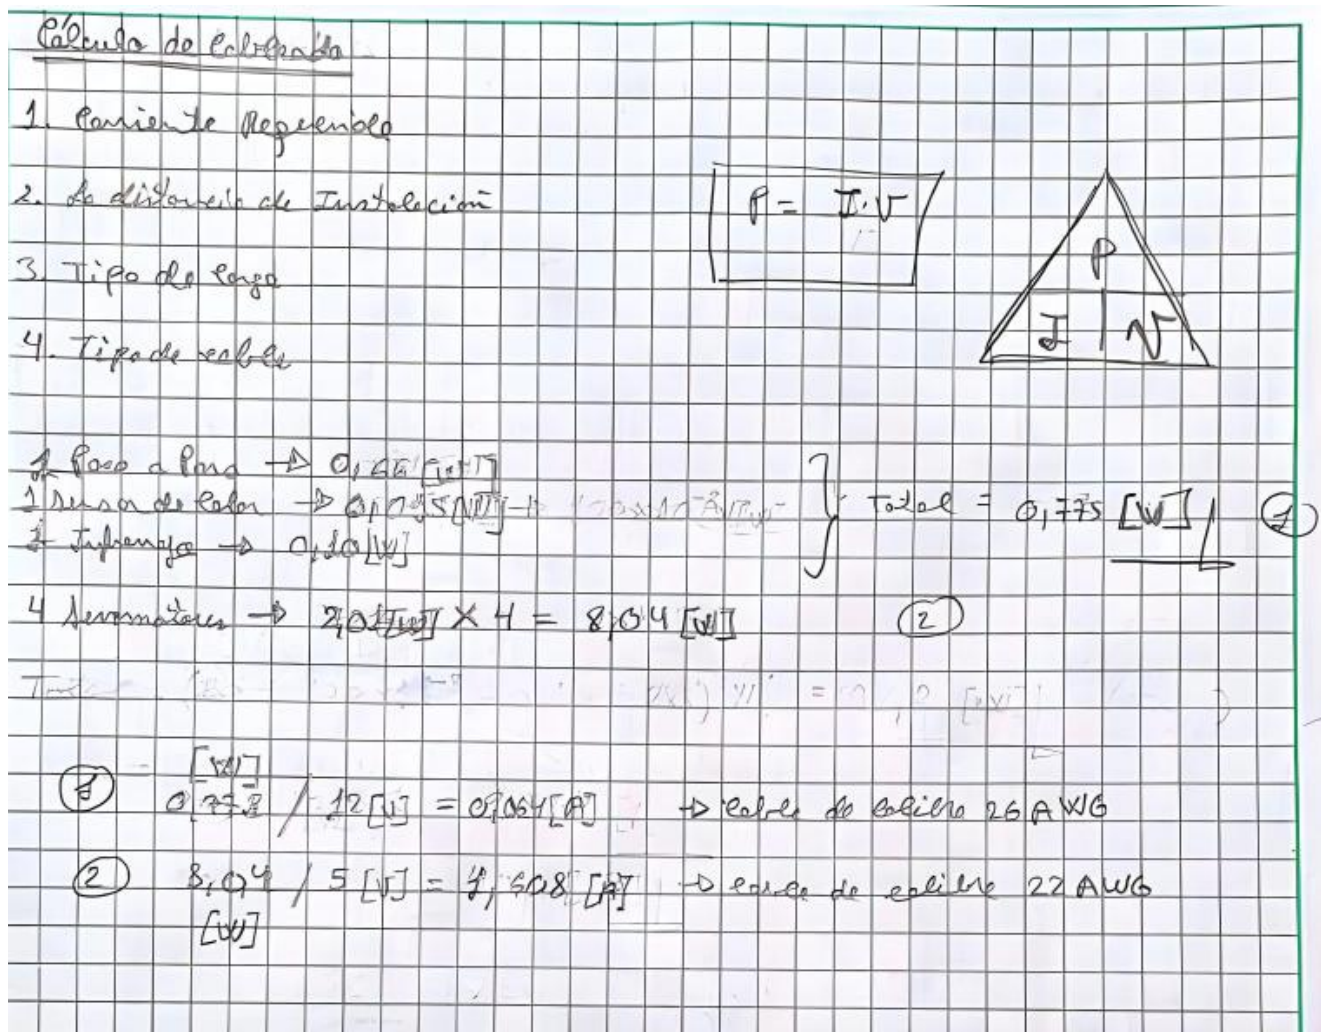 Cálculo de Cableado
1. Corriente Requerida
2. La distancia de Instalación
P = I·V
3. Tipo de carga
P
4. Tipo de cable
I V
1 Paso a Paso → 0,66
1 Sensor de Color → 0,015[W]
Total = 0,775 [W] 1
1 Infrarrojo → 0,10[W]
4 Servomotores → 2,01[W] X 4 = 8,04 [W] 2
[W]
1 0,775 / 12[V] = 0,064[A] → cable de calibre 26 AWG
2 8,04 / 5 [V] = 1,608 [A] → cable de calibre 22 AWG
[W]